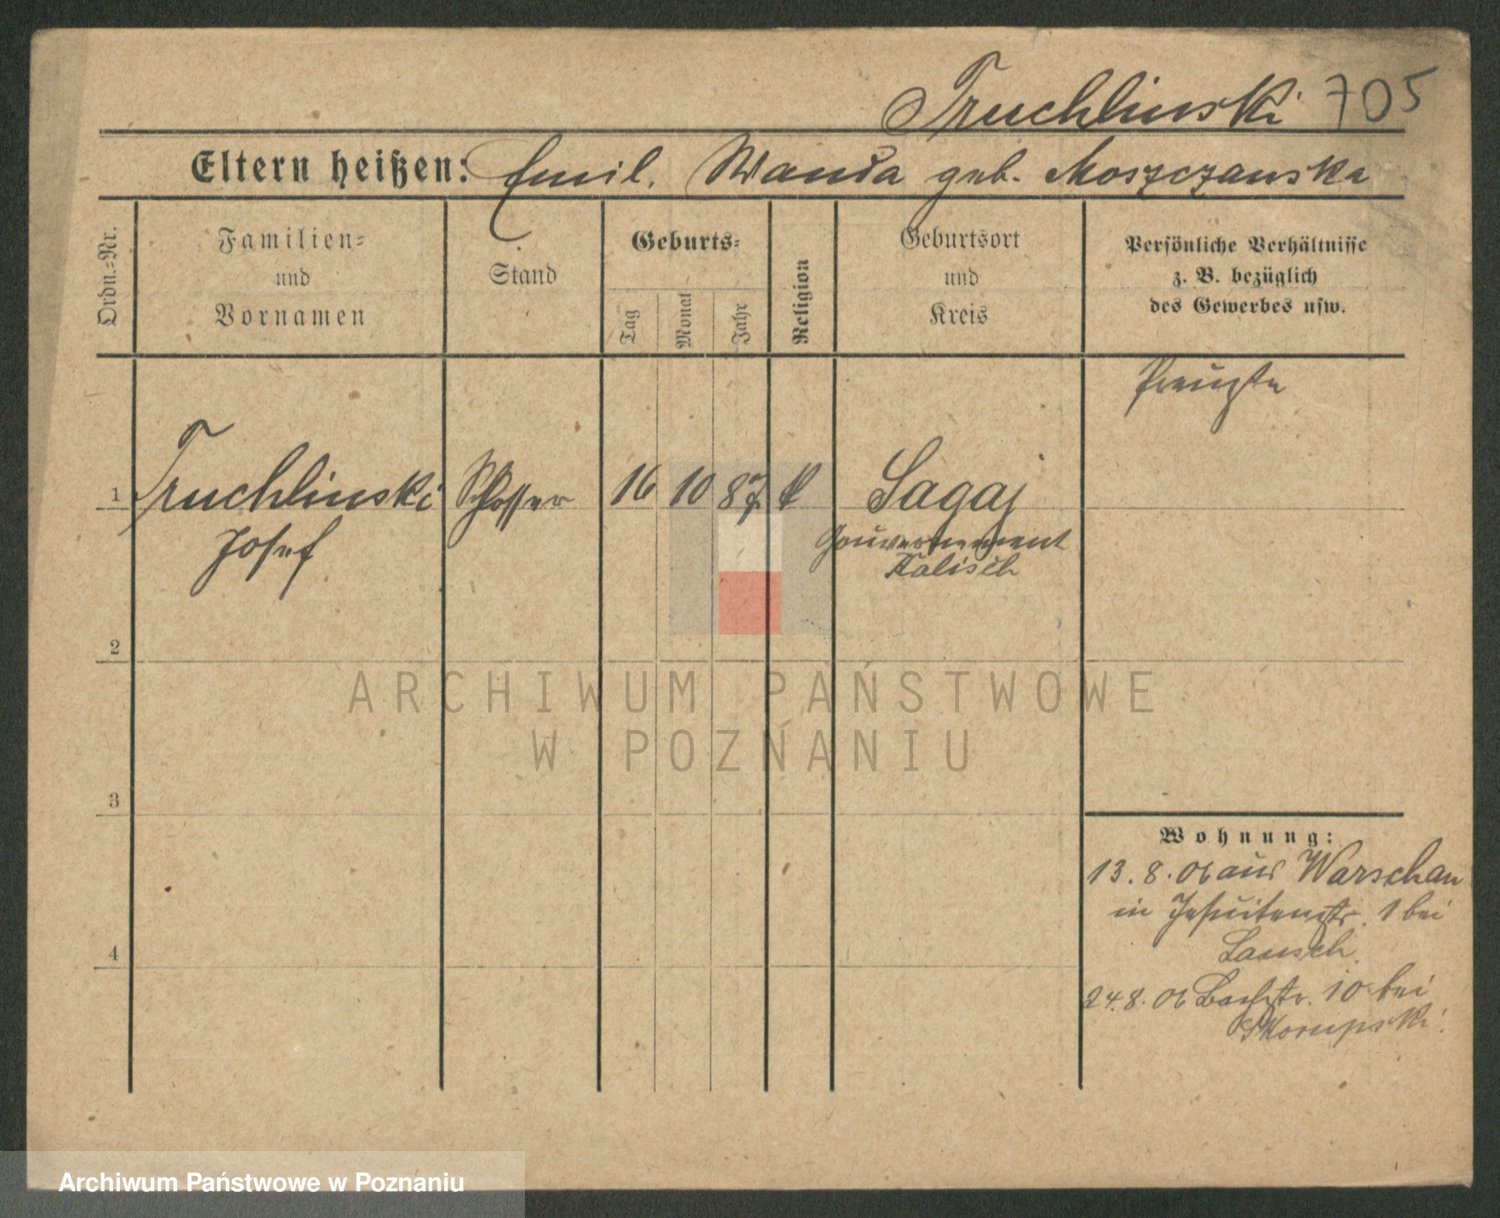 Truchlinski 705
Eltern heißen: Emil. Wanda geb. Moszczanska
Ordn.=Nr.
Familien=
und
Vornamen
Stand
Geburts=
Tag
Monat
Jahr
Religion
Geburtsort
und
Kreis
Persönliche Verhältnisse
z. B. bezüglich
des Gewerbes usw.
Preuße
1 Truchlinski Schlosser 16 10 87 k Sagaj
Josef
Gouvernement
Kalisch
2
3
4
Wohnung:
13.8.06 aus Warschau
in Jesuitenstr. 1 bei
Lausch.
24.8.06 Bachstr. 10 bei
Skorupski.
ARCHIWUM PAŃSTWOWE
W POZNANIU
Archiwum Państwowe w Poznaniu